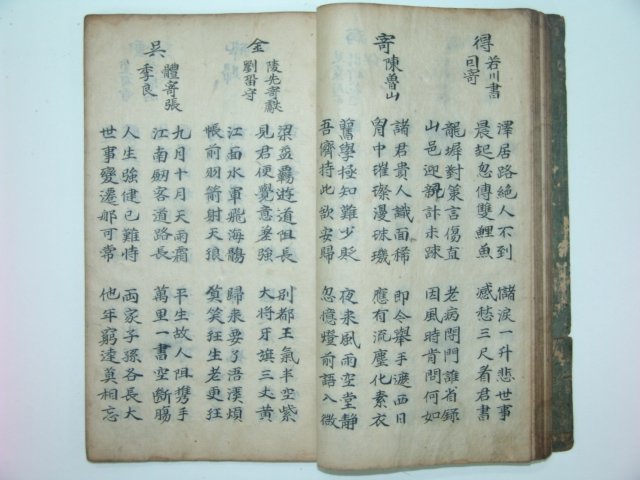 得若川書回寄
澤居路絶人不到 儲淚一升悲世事
晨起忽傳雙鯉魚 感愁三尺看君書
龍墀對策言傷直 老病閉門誰省錄
山邑迎親計未踈 因風時肯問何如
寄陳魯山
諸君貴人識面稀 即今擧手遮西日
胷中璀璨漫珠璣 應有流塵化素衣
舊學極知難少貶 夜來風雨空堂靜
吾儕持此欲安歸 忽憶燈前語入微
金陵先寄獻劉留守
梁益羈遊道阻長 別都王氣半空紫
見君便覺意差強 大將牙旗三丈黃
江面水軍飛海鶻 歸來要了浯溪頌
帳前羽箭射天狼 笑狂生老更狂
吳體寄張季良
九月十月天雨霜 平生故人阻携手
江南劒客道路長 萬里一書空斷腸
人生強健已難恃 兩家子孫各長大
世事變遷那可常 他年窮達莫相忘